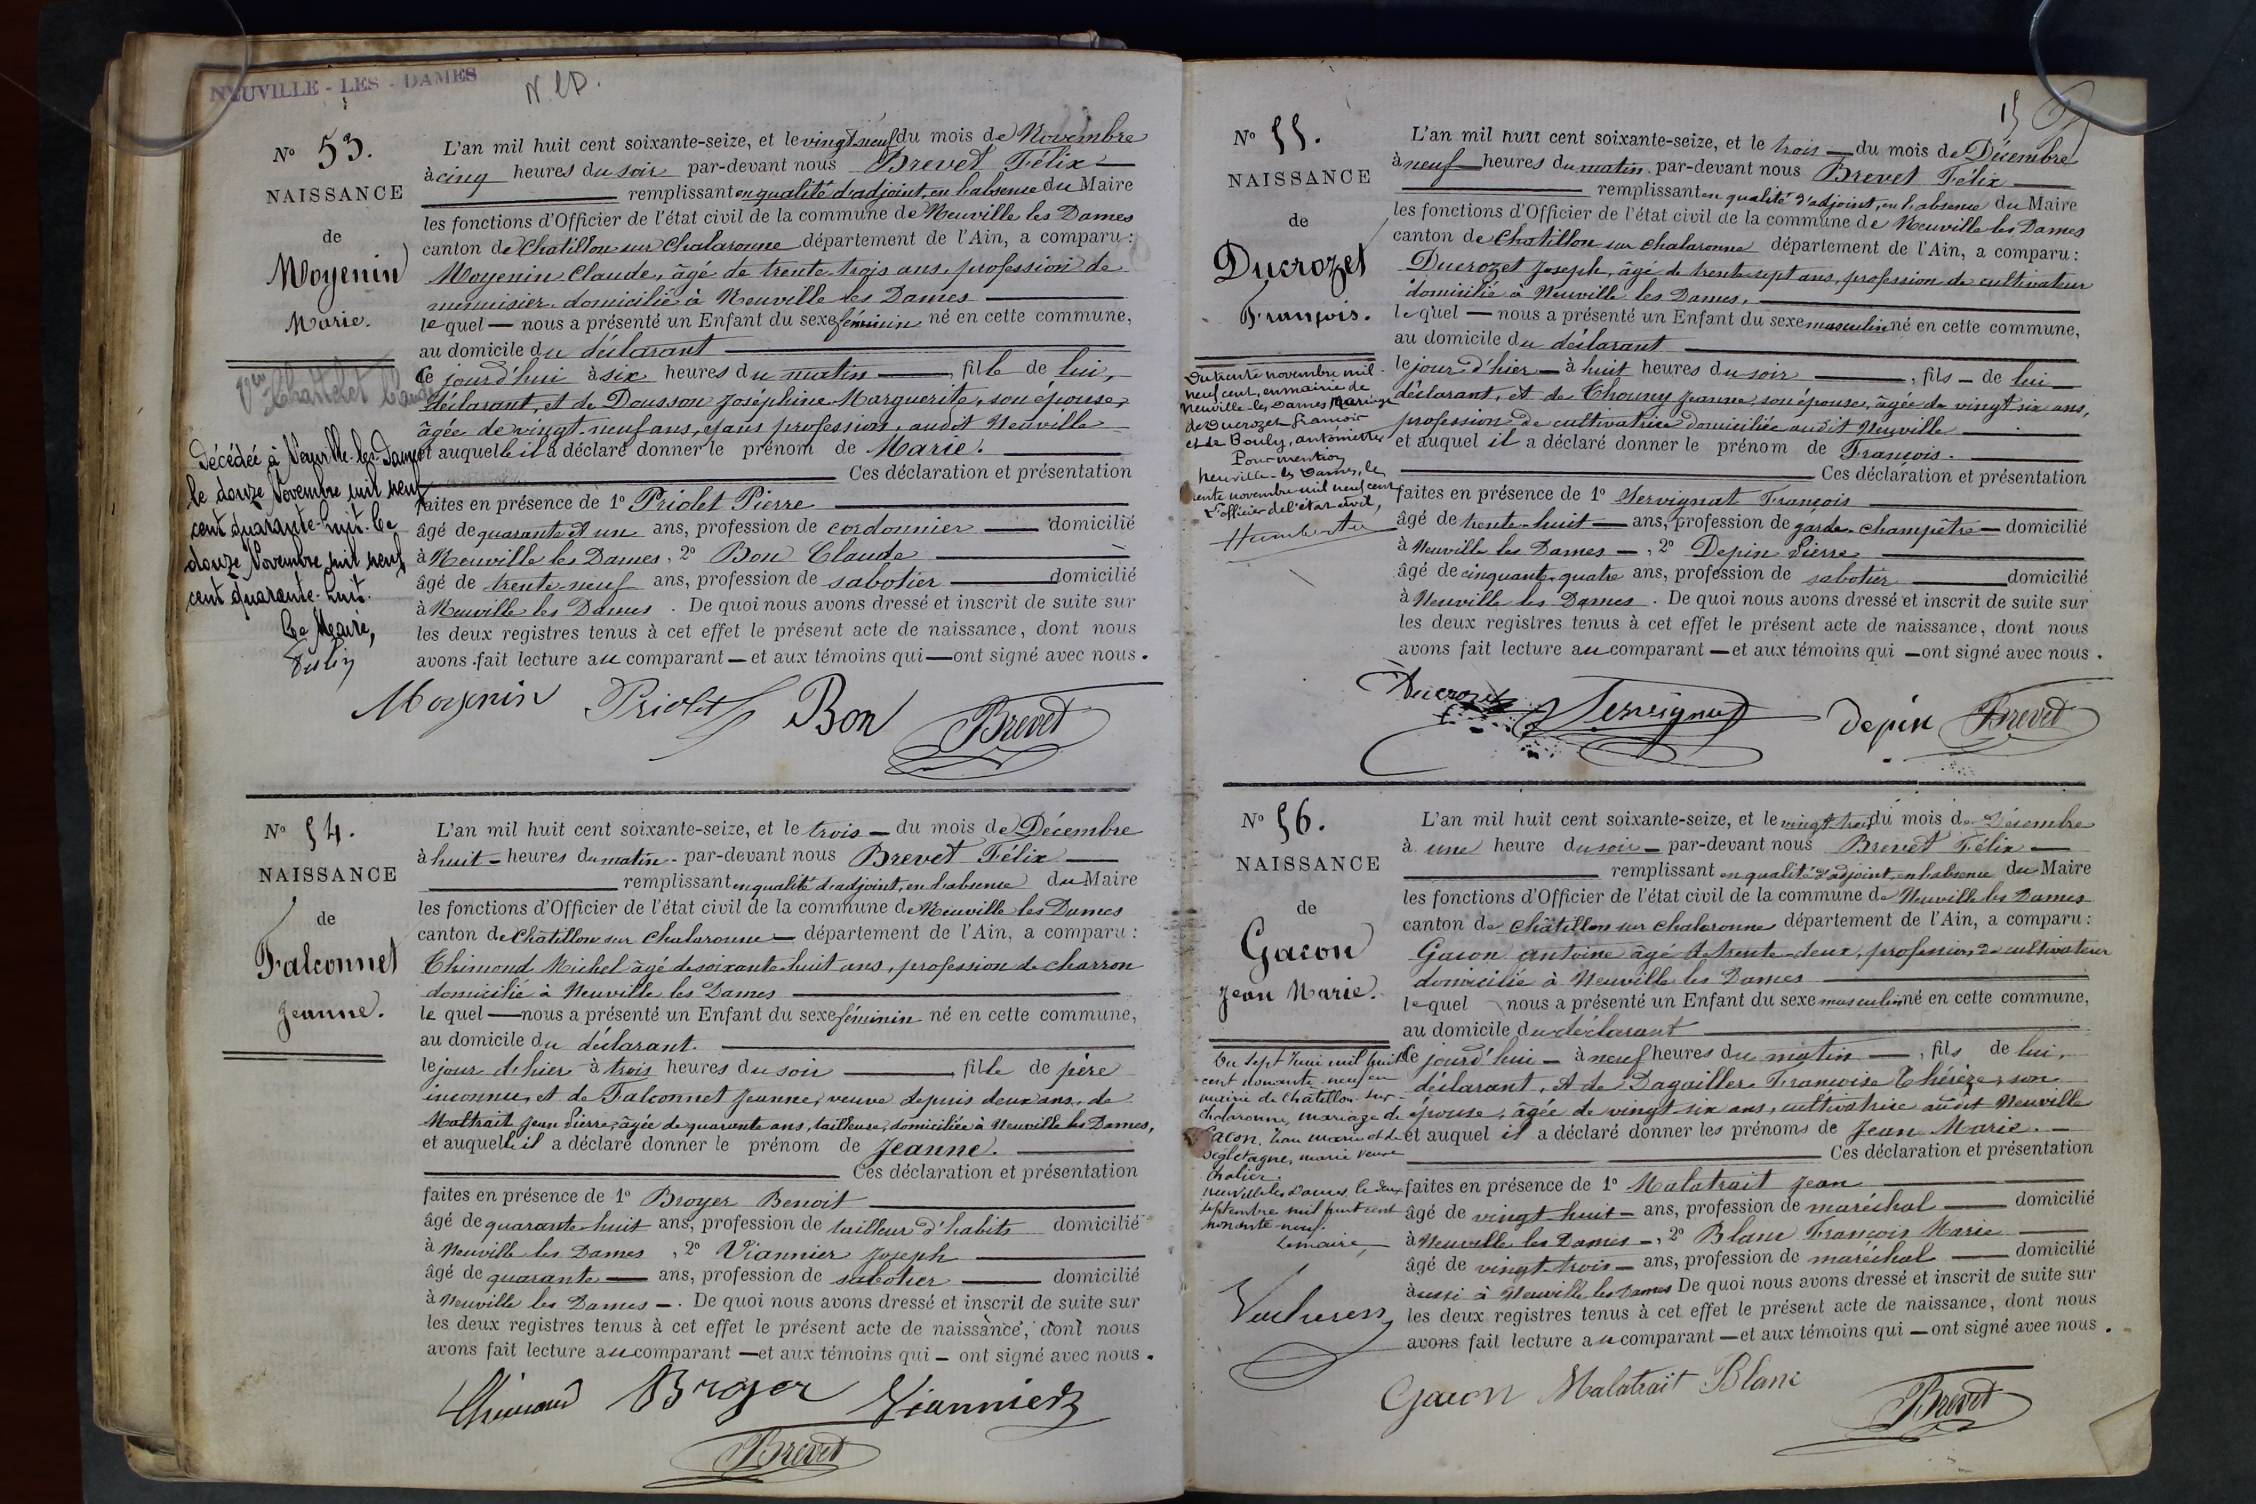 NEUVILLE - LES - DAMES
N. L D.
Nº 53.
NAISSANCE
de
Moyenin
Marie.
Vve Chattelet Claude
Décédée à Neuville-les-Dames
le douze Novembre mil neuf
cent quarante-huit. Le
douze Novembre mil neuf
cent quarante-huit.
Le Maire,
L'an mil huit cent soixante-seize, et le vingt neuf du mois de Novembre
à cinq heures du soir par-devant nous Brevet Félix
remplissant en qualité d'adjoint, en l'absence du Maire
les fonctions d'Officier de l'état civil de la commune de Neuville les Dames
canton de Chatillon sur Chalaronne département de l'Ain, a comparu :
Moyenin Claude, âgé de trente-trois ans, profession de
menuisier domicilié à Neuville les Dames
lequel nous a présenté un Enfant du sexe féminin né en cette commune,
au domicile du déclarant
ce jourd'hui à six heures du matin , fille de lui,
déclarant, et de Dousson Joséphine Marguerite, son épouse,
âgée de vingt-neuf ans, sans profession, audit Neuville
et auquelle il a déclaré donner le prénom de Marie.
Ces déclaration et présentation
faites en présence de 1º Priolet Pierre
âgé de quarante et un ans, profession de cordonnier domicilié
à Neuville les Dames, 2º Bon Claude
âgé de trente-neuf ans, profession de sabotier domicilié
à Neuville les Dames . De quoi nous avons dressé et inscrit de suite sur
les deux registres tenus à cet effet le présent acte de naissance, dont nous
avons fait lecture au comparant — et aux témoins qui — ont signé avec nous.
Moyenin Priolet Bon Brevet
Nº 54.
NAISSANCE
de
Falconnet
Jeanne.
L'an mil huit cent soixante-seize, et le trois — du mois de Décembre
à huit — heures du matin - par-devant nous Brevet Félix
remplissant en qualité d'adjoint, en l'absence du Maire
les fonctions d'Officier de l'état civil de la commune de Neuville les Dames
canton de Châtillon sur Chalaronne — département de l'Ain, a comparu :
Thimond Michel âgé de soixante huit ans, profession de charron
domicilié à Neuville les Dames
le quel — nous a présenté un Enfant du sexe féminin né en cette commune,
au domicile du déclarant.
le jour d'hier à trois heures du soir , fille de père
inconnu, et de Falconnet Jeanne, veuve depuis deux ans, de
Maltrait Jean Pierre, âgée de quarante ans, tailleuse, domiciliée à Neuville les Dames,
et auquelle il a déclaré donner le prénom de Jeanne.
Ces déclaration et présentation
faites en présence de 1º Broyer Benoit
âgé de quarante-huit ans, profession de tailleur d'habits domicilié
à Neuville les Dames , 2º Viannier Joseph
âgé de quarante — ans, profession de sabotier domicilié
à Neuville les Dames —. De quoi nous avons dressé et inscrit de suite sur
les deux registres tenus à cet effet le présent acte de naissance, dont nous
avons fait lecture au comparant — et aux témoins qui — ont signé avec nous.
Thimond Broyer Viannier
Brevet
15
Nº 55.
NAISSANCE
de
Ducrozet
François.
Du trente novembre mil
neuf cent, en mairie de
Neuville-les-Dames, Mariage
de Ducrozet François
et de Bouly, Antoinette
Pour mention
Neuville-les-Dames, le
trente novembre mil neuf cent
L'officier de l'état civil,
Humbert
L'an mil huit cent soixante-seize, et le trois — du mois de Décembre
à neuf heures du matin par-devant nous Brevet Félix
remplissant en qualité d'adjoint, en l'absence du Maire
les fonctions d'Officier de l'état civil de la commune de Neuville les Dames
canton de Chatillon sur Chalaronne département de l'Ain, a comparu :
Ducrozet Joseph, âgé de trente-sept ans, profession de cultivateur
domicilié à Neuville les Dames,
lequel — nous a présenté un Enfant du sexe masculin né en cette commune,
au domicile du déclarant
le jour d'hier — à huit heures du soir , fils — de lui
déclarant, et de Thouny Jeanne, son épouse, âgée de vingt-six ans,
profession de cultivatrice domiciliée audit Neuville
et auquel il a déclaré donner le prénom de François.
Ces déclaration et présentation
faites en présence de 1º Servignat François
âgé de trente-huit — ans, profession de garde-champêtre — domicilié
à Neuville les Dames — , 2º Depin Pierre
âgé de cinquante-quatre ans, profession de sabotier domicilié
à Neuville les Dames . De quoi nous avons dressé et inscrit de suite sur
les deux registres tenus à cet effet le présent acte de naissance, dont nous
avons fait lecture au comparant — et aux témoins qui — ont signé avec nous.
Ducrozet Servignat depin Brevet
Nº 56.
NAISSANCE
de
Gacon
Jean Marie.
Du sept Juin mil huit
cent nonante-neuf en
mairie de Châtillon-sur-
Chalaronne, mariage de
Gacon, Jean Marie et de
marie veuve
Chalier.
Neuville les Dames, le deux
septembre mil huit cent
nonante-neuf.
Le maire,
L'an mil huit cent soixante-seize, et le vingt-trois du mois de Décembre
à une heure du soir — par-devant nous Brevet Félix
remplissant en qualité d'adjoint, en l'absence du Maire
les fonctions d'Officier de l'état civil de la commune de Neuville les Dames
canton de Châtillon sur Chalaronne département de l'Ain, a comparu :
Gacon Antoine âgé de trente-deux, profession de cultivateur
domicilié à Neuville les Dames
lequel nous a présenté un Enfant du sexe masculin né en cette commune,
au domicile du déclarant
ce jourd'hui — à neuf heures du matin , fils de lui,
déclarant, et de Dagallier Françoise Thérèze, son
épouse, âgée de vingt-six ans, cultivatrice audit Neuville
et auquel il a déclaré donner les prénoms de Jean Marie.
Ces déclaration et présentation
faites en présence de 1º Malatrait Jean
âgé de vingt-huit — ans, profession de maréchal domicilié
à Neuville les Dames —, 2º Blanc François Marie
âgé de vingt-trois — ans, profession de maréchal domicilié
aussi à Neuville les Dames De quoi nous avons dressé et inscrit de suite sur
les deux registres tenus à cet effet le présent acte de naissance, dont nous
avons fait lecture au comparant — et aux témoins qui — ont signé avec nous.
Gacon Malatrait Blanc
Brevet